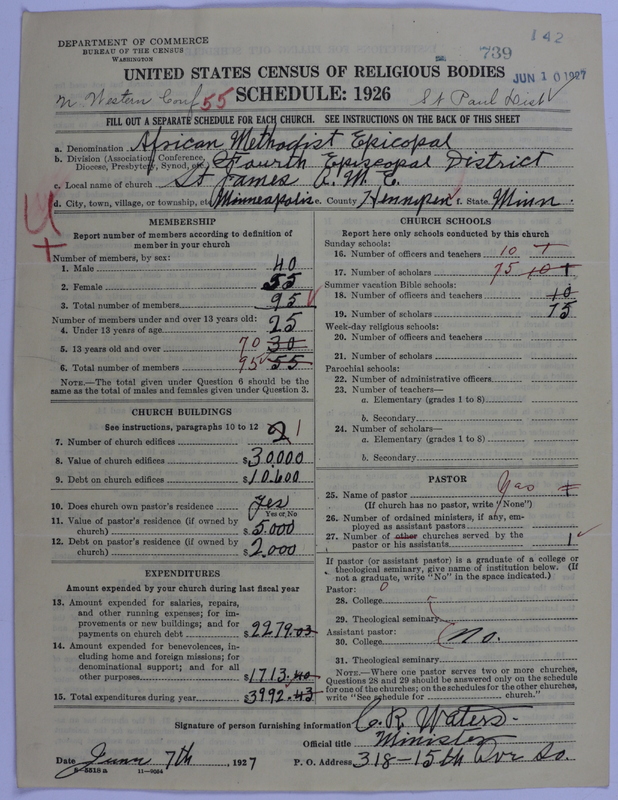 142
739
JUN 10 1927
DEPARTMENT OF COMMERCE
BUREAU OF THE CENSUS
WASHINGTON
UNITED STATES CENSUS OF RELIGIOUS BODIES
N. Western Conf 55 SCHEDULE: 1926 St Paul Dist
FILL OUT A SEPARATE SCHEDULE FOR EACH CHURCH. SEE INSTRUCTIONS ON THE BACK OF THIS SHEET
a. Denomination African Methodist Episcopal
b. Division (Association, Conference, Diocese, Presbytery, Synod, etc.) Fourth Episcopal District
c. Local name of church St James A. M. E.
d. City, town, village, or township, etc. Minneapolis e. County Hennipen f. State Minn.
MEMBERSHIP
Report number of members according to definition of
member in your church
Number of members, by sex:
1. Male 40
2. Female 55
3. Total number of members 95
Number of members under and over 13 years old:
4. Under 13 years of age 25
5. 13 years old and over 70 30
6. Total number of members 95 55
NOTE.—The total given under Question 6 should be the
same as the total of males and females given under Question 3.
CHURCH BUILDINGS
See instructions, paragraphs 10 to 12
7. Number of church edifices 2 1
8. Value of church edifices $30,000
9. Debt on church edifices $10,600
10. Does church own pastor's residence yes
Yes or No
11. Value of pastor's residence (if owned by
church) $5,000
12. Debt on pastor's residence (if owned by
church) $2,000
EXPENDITURES
Amount expended by your church during last fiscal year
13. Amount expended for salaries, repairs,
and other running expenses; for im-
provements or new buildings; and for
payments on church debt $2279.03
14. Amount expended for benevolences, in-
cluding home and foreign missions; for
denominational support; and for all
other purposes $1713.40
15. Total expenditures during year $3992.43
CHURCH SCHOOLS
Report here only schools conducted by this church
Sunday schools:
16. Number of officers and teachers 10
17. Number of scholars 75 10
Summer vacation Bible schools:
18. Number of officers and teachers 10
19. Number of scholars 75
Week-day religious schools:
20. Number of officers and teachers
21. Number of scholars
Parochial schools:
22. Number of administrative officers
23. Number of teachers—
a. Elementary (grades 1 to 8)
b. Secondary
24. Number of scholars—
a. Elementary (grades 1 to 8)
b. Secondary
PASTOR
25. Name of pastor
(If church has no pastor, write "None")
26. Number of ordained ministers, if any, em-
ployed as assistant pastors
27. Number of other churches served by the
pastor or his assistants 1
If pastor (or assistant pastor) is a graduate of a college or
theological seminary, give name of institution below. (If
not a graduate, write "No" in the space indicated.)
Pastor: 0
28. College
29. Theological seminary
Assistant pastor:
30. College No.
31. Theological seminary
NOTE.—Where one pastor serves two or more churches,
Questions 28 and 29 should be answered only on the schedule
for one of the churches; on the schedules for the other churches,
write "See schedule for church."
Signature of person furnishing information C. R. Waters.
Official title Minister
Date June 7th, 1927 P. O. Address 318-15th Ave So.
8-5518 a 11-9054